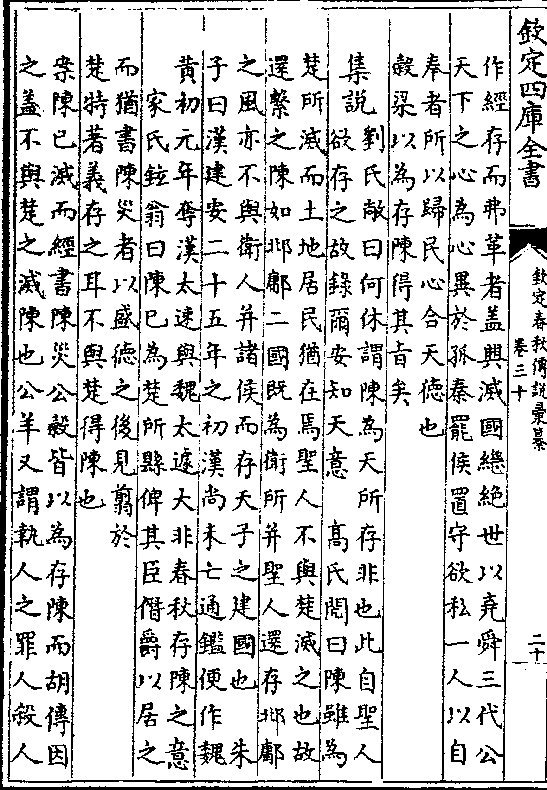 欽定四庫全書
欽定春秋傳說彙纂
卷三十
二十
作經存而弗革者蓋興滅國繼絶世以堯舜三代公
天下之心為心異於孤秦罷侯置守欲私一人以自
奉者所以歸民心合天德也
穀梁以為存陳得其旨矣
集說
劉氏敞曰何休謂陳為天所存非也此自聖人
欲存之故錄爾安知天意　髙氏閌曰陳雖為
楚所滅而土地居民猶在焉聖人不與楚滅之也故
還繫之陳如邶鄘二國既為衛所并聖人還存邶鄘
之風亦不與衛人并諸侯而存天子之建國也　朱
子曰漢建安二十五年之初漢尚未亡通鑑便作魏
黄初元年奪漢太速與魏太遽大非春秋存陳之意
家氏鉉翁曰陳已為楚所縣俾其臣僭爵以居之
而猶書陳災者以盛德之後見翦於
楚特著義存之耳不與楚得陳也
案陳已滅而經書陳災公穀皆以為存陳而胡傳因
之蓋不與楚之滅陳也公羊又謂執人之罪人殺人